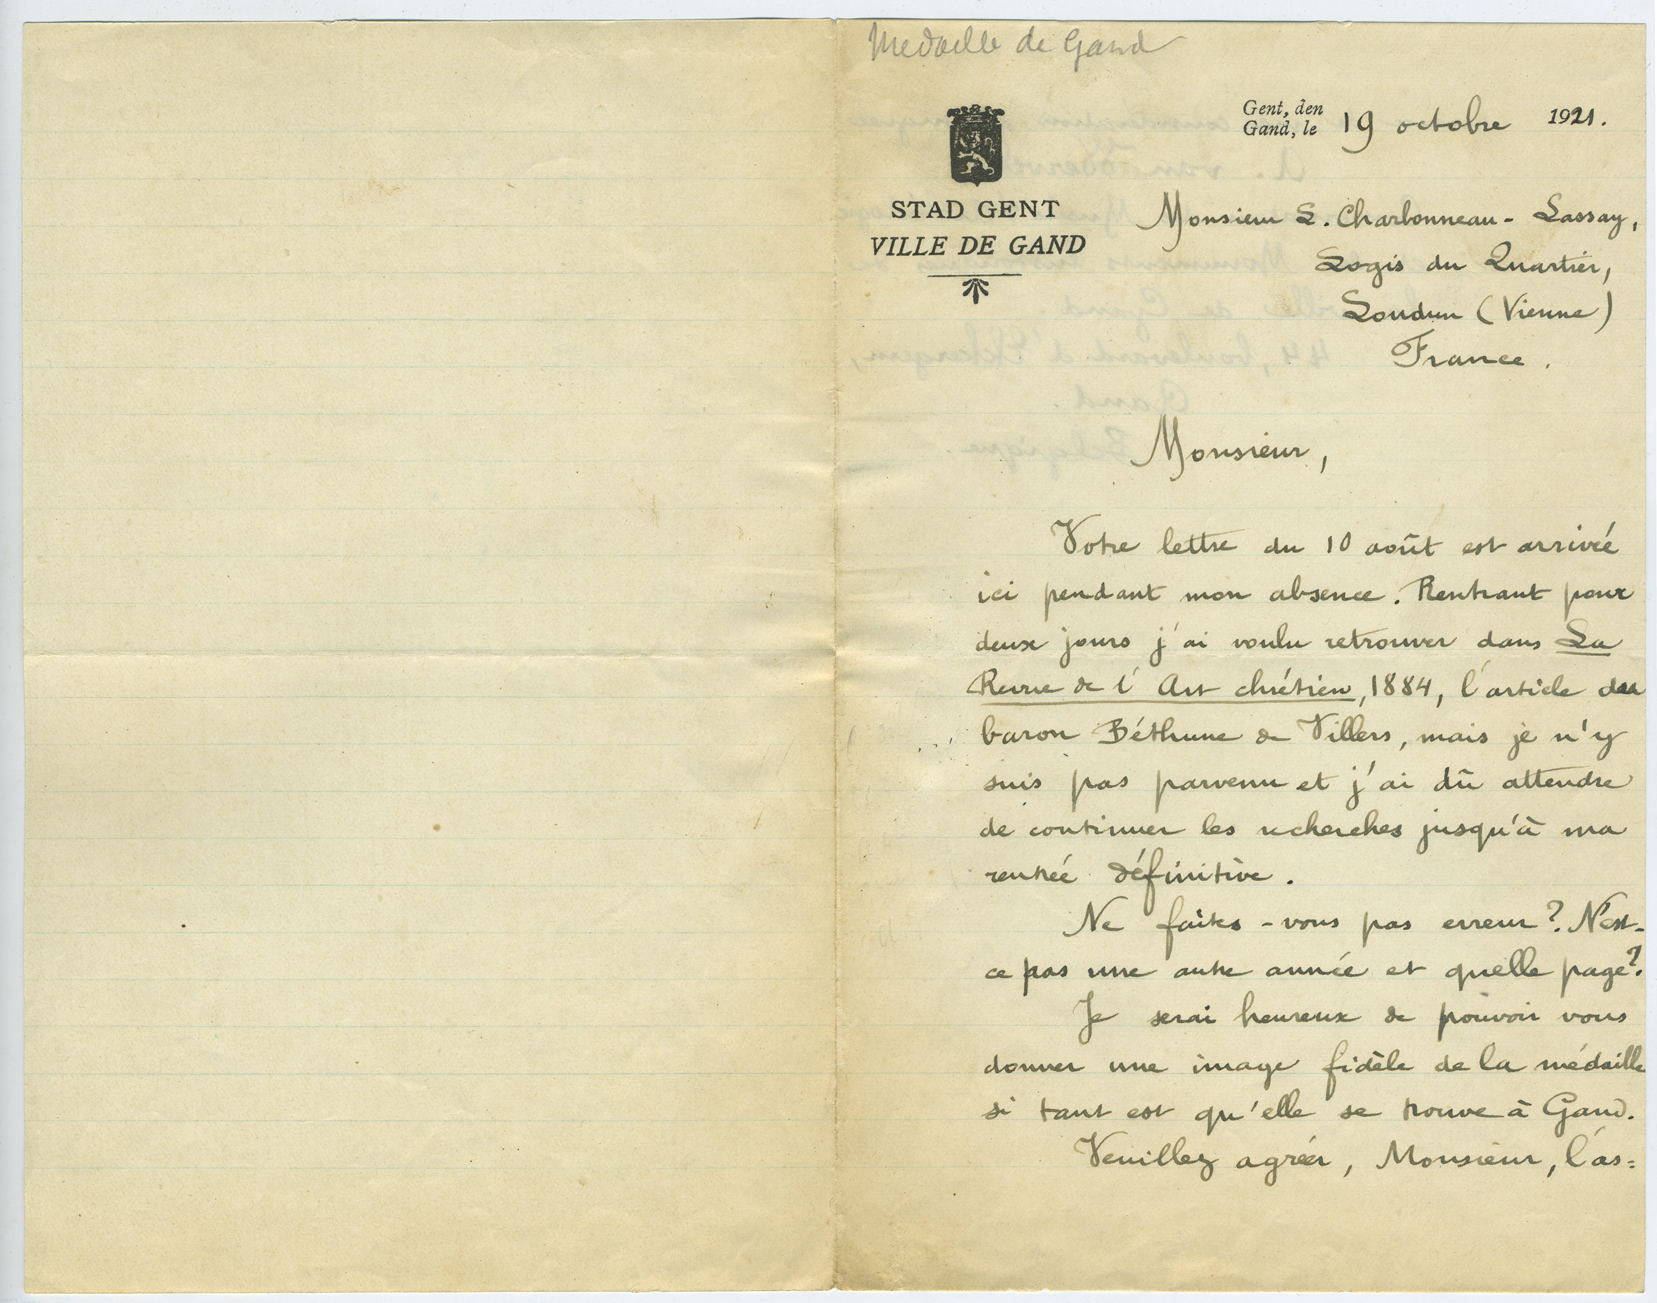 Medaille de Gand
Gent, den
Gand, le 19 octobre 1921.
STAD GENT
VILLE DE GAND
Monsieur L. Charbonneau-Lassay,
Logis du Quartier,
Loudun (Vienne)
France.
Monsieur,
Votre lettre du 10 août est arrivée
ici pendant mon absence. Rentrant pour
deux jours j'ai voulu retrouver dans La
Revue de l'Art chrétien, 1884, l'article du
baron Béthune de Villers, mais je n'y
suis pas parvenu et j'ai dû attendre
de continuer les recherches jusqu'à ma
rentrée définitive.
Ne faites-vous pas erreur? N'est-
ce pas une autre année et quelle page?
Je serai heureux de pouvoir vous
donner une image fidèle de la médaille
si tant est qu'elle se trouve à Gand.
Veuillez agréer, Monsieur, l'as=